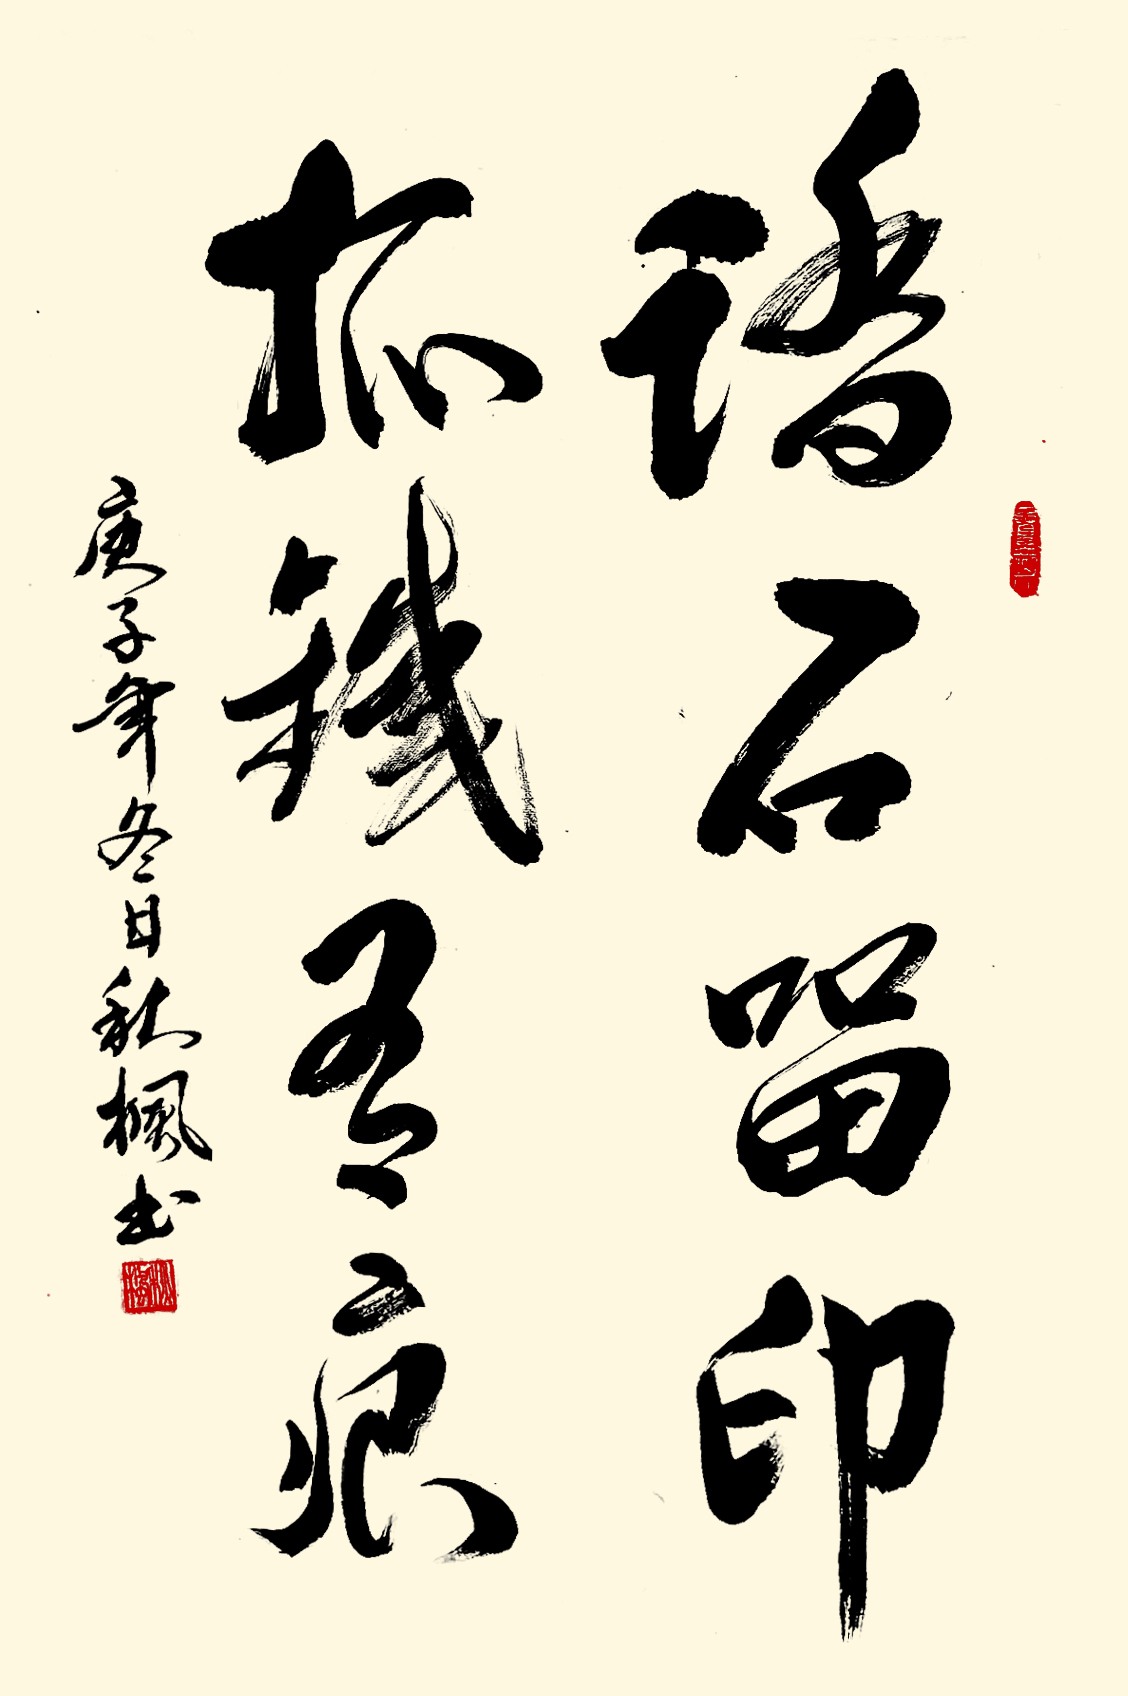 踏石留印
抓鐵有痕
庚子年冬日秋楓书